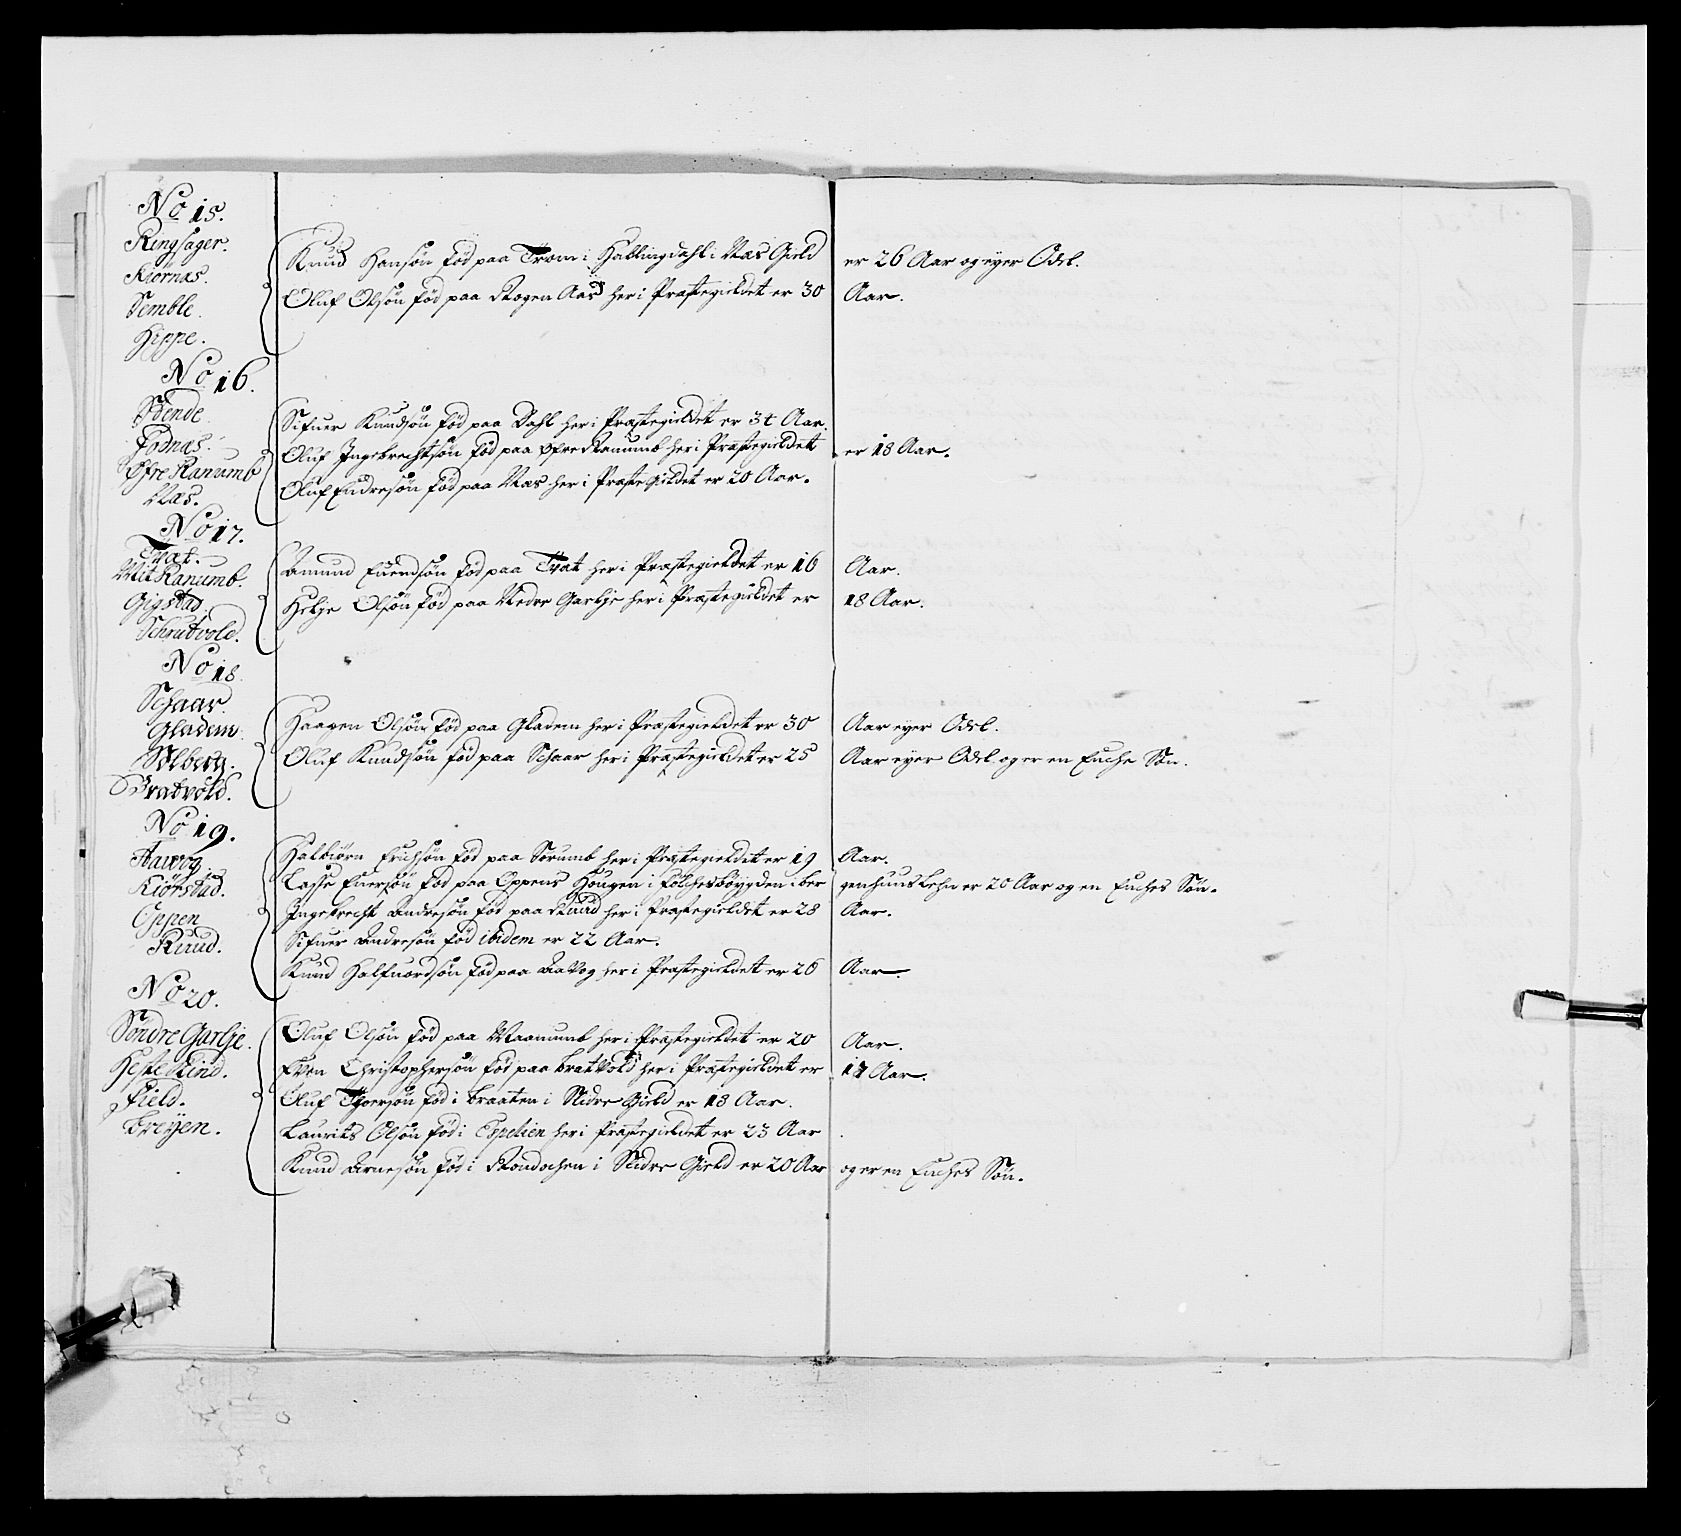 No 15.
Ringsager.
Kiörnas.
Semble.
Hippe.
Knud Hansön född paa Trom i Hallingdahl i Næs Gield er 26 Aar og eyer Odel.
Oluf Olsön föd paa Rogen Aas her i Præstegieldet er 30 Aar.
No 16.
Sende
Födnas.
Øfre Ranumb
Næs.
Sifuer Knudsön föd paa Dahl her i Præstegieldet er 34 Aar.
Oluf Ingebrechtsön föd paa Øfre Ranumb her i Præstegieldett er 18 Aar.
Oluf Endresön föd paa Næs her i Præstegieldet er 20 Aar.
No 17.
Tvæt.
Mit Ranumb.
Gigstad.
Schrutvold.
Amund Euendsön föd paa Tvæt her i Præstegieldet er 16 Aar.
Helje Olsön föd paa Nedre Garlje her i Præstegieldet er 18 Aar.
No 18.
Schaar.
Gladem.
Sölberg.
Bratvold.
Haagen Olsön föd paa Gladem her i Præstegieldet er 30 Aar eyer Odel.
Oluf Knudsön föd paa Schaar her i Præstegieldet er 25 Aar eyer Odel og er en Enche Søn.
No 19.
Aavog.
Kiörstad.
Oppen
Ruud.
Halbiörn Erichsön föd paa Sörumb her i Præstegieldet er 19 Aar.
Lasse Euersön föd paa Oppens Hougen i Folchesböygden i Ber genhuus Lehn er 20 Aar og en Enches Søn.
Ingebrecht Andresön föd paa Ruud her i Præstegieldet er 28 Aar.
Sifuer Andresön föd ibidem er 22 Aar.
Knud Halfuordsön föd paa Aavog her i Præstegieldet er 26 Aar.
No 20.
Söndre Garlje.
Heste Kind.
Field.
Breyen.
Oluf Olsön föd paa Maanumb her i Præstegieldet er 20 Aar.
Even Christophersön föd paa Bratvold her i Præstegieldet er 17 Aar.
Oluf Thorsön föd i Braaten i Slidre Gield er 18 Aar.
Laurits Olsön föd i Espelien her i Præstegieldet er 23 Aar
Knud Arnesön föd i Rondochen i Slidre Gield er 20 Aar og er en Enches Søn.